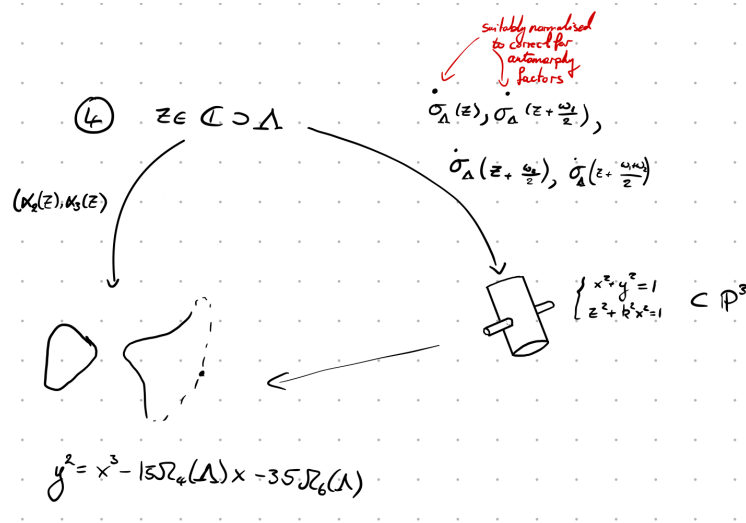 suitably normalised
to correct for
automorphy
factors
④ z ∈ ℂ ⊃ Λ
σ̇_Λ(z), σ̇_Λ(z + ω₁/2),
σ̇_Λ(z + ω₂/2), σ̇_Λ(z + (ω₁+ω₂)/2)
(α₂(z), α₃(z)
{ x² + y² = 1
z² + k²x² = 1
⊂ ℙ³
y² = x³ - 15Ω₄(Λ)x - 35Ω₆(Λ)